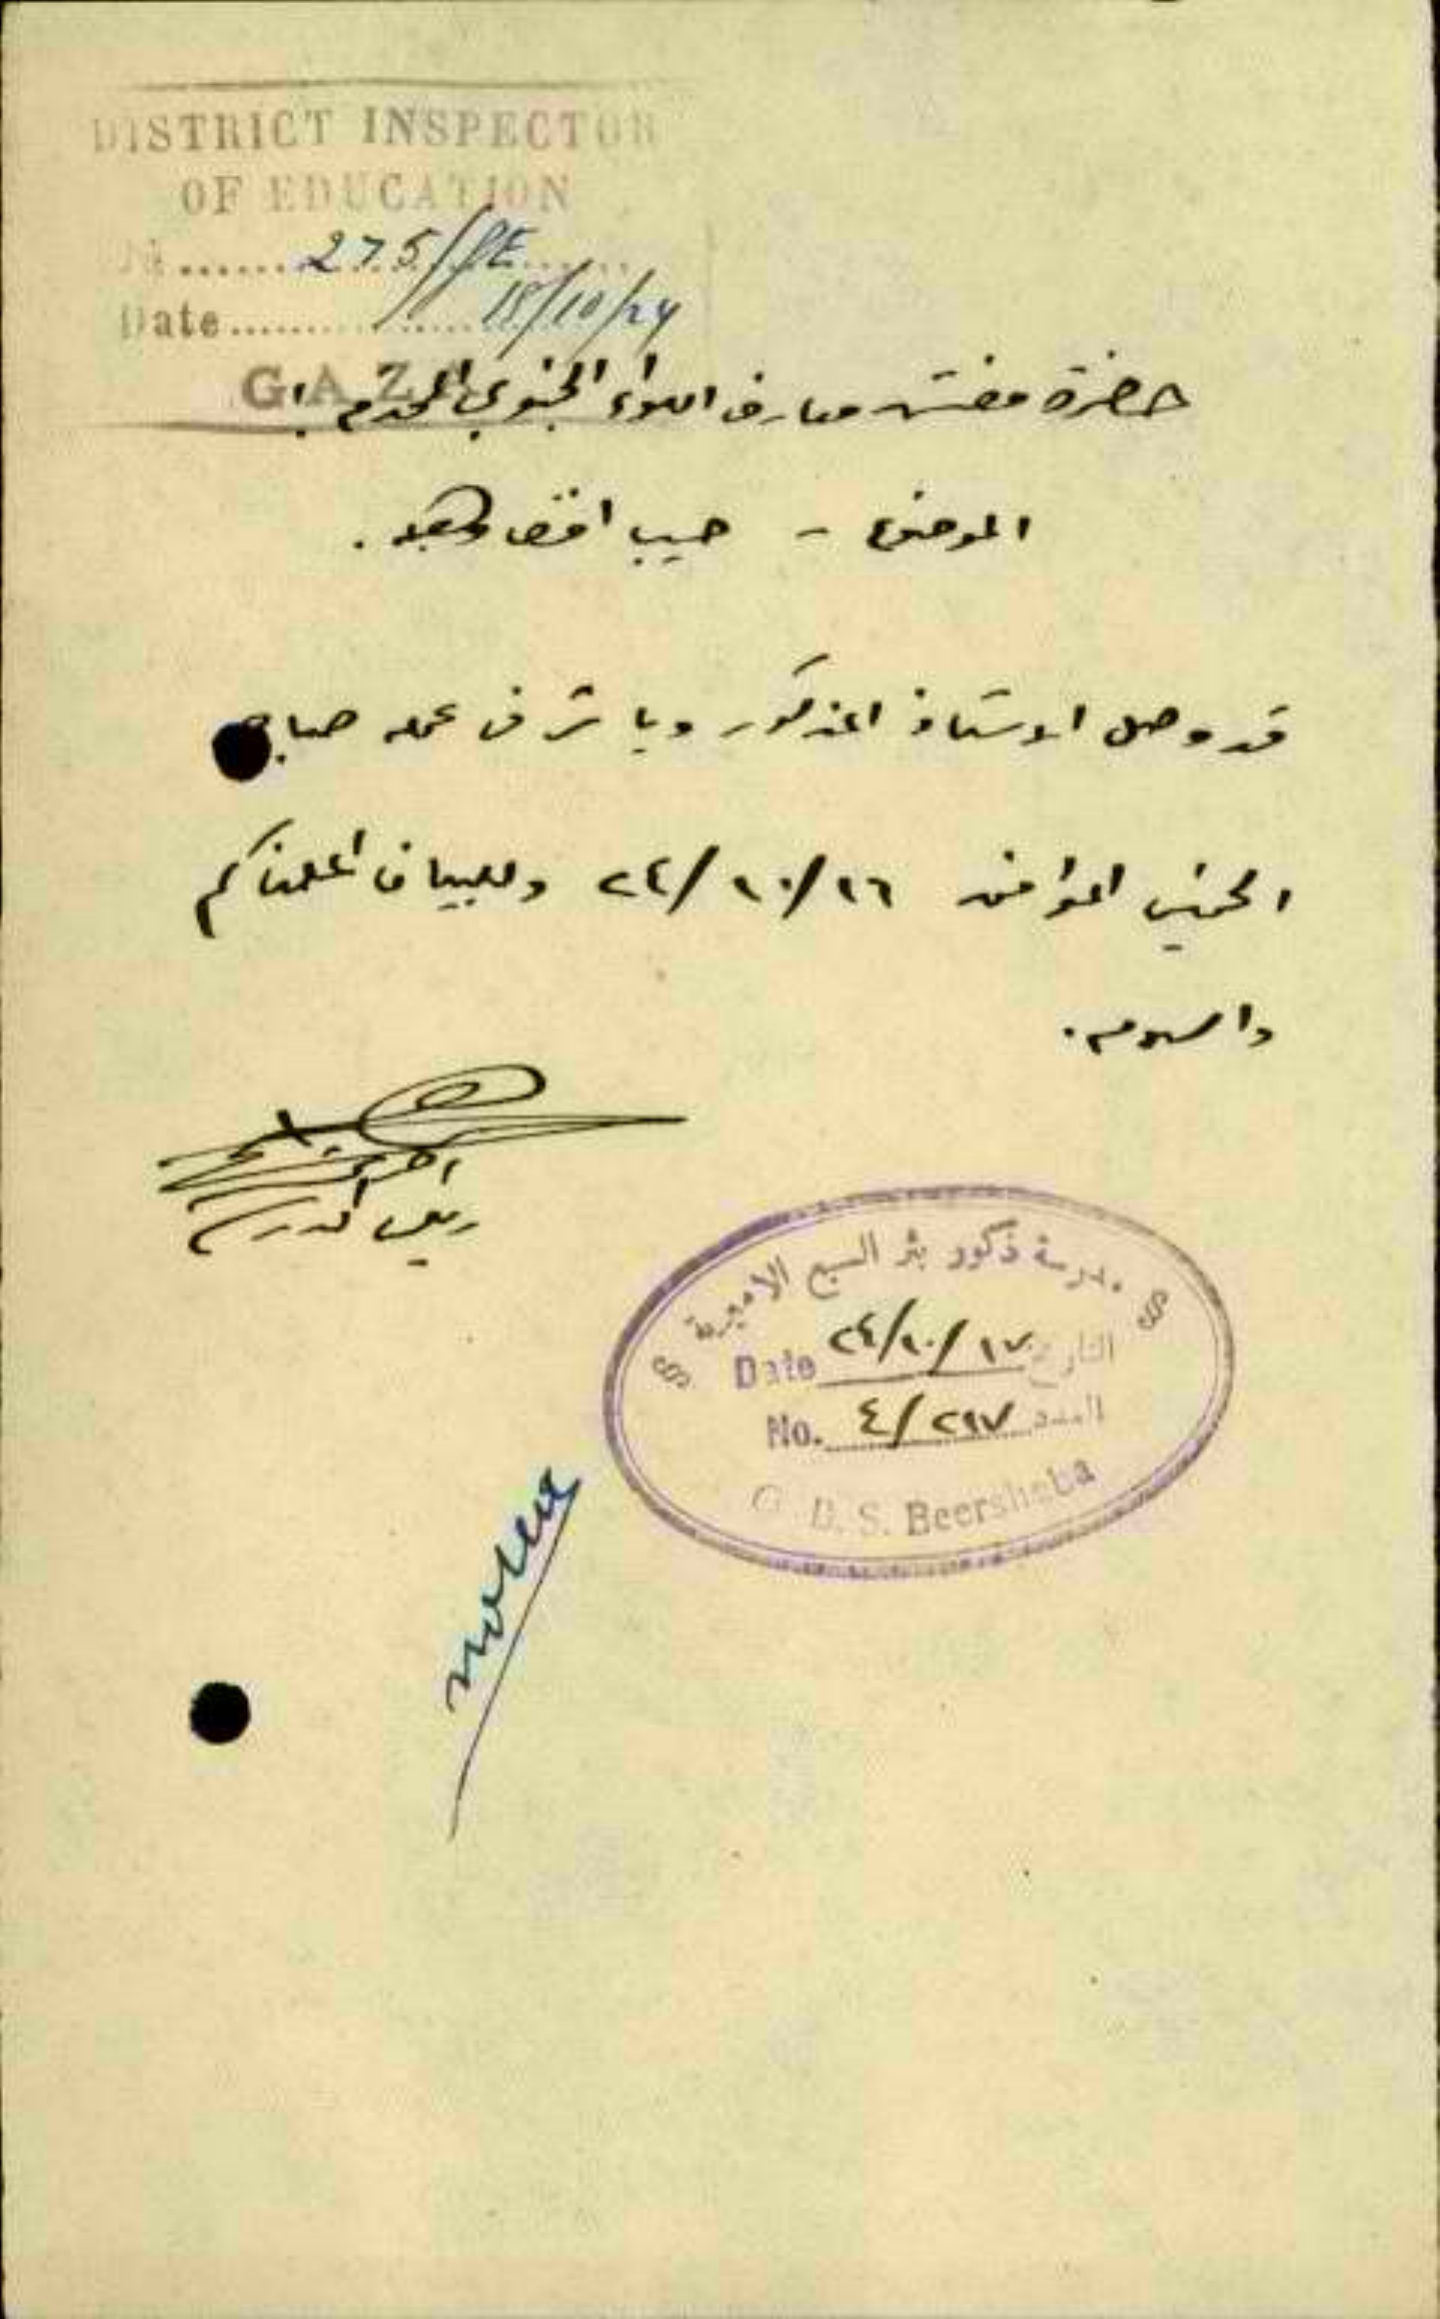 DISTRICT INSPECTOR
OF EDUCATION
No ...... 275/GE ......
Date ...... 18/10/24
GAZA
حضرة مفتش معارف اللواء الجنوبي المحترم
الموضوع - حبيب افندي
قد وصل الاستاذ المذكور وباشر في عمله صباح
الخميس الموافق ١٦/١٠/٢٤ وللبيان اعلمناكم
والسلام.
رئيس المدرسة
مدرسة ذكور بئر السبع الاميرية
Date ١٧/١٠/٢٤ التاريخ
No. ٤/٢٩٧ العدد
G. B. S. Beersheba